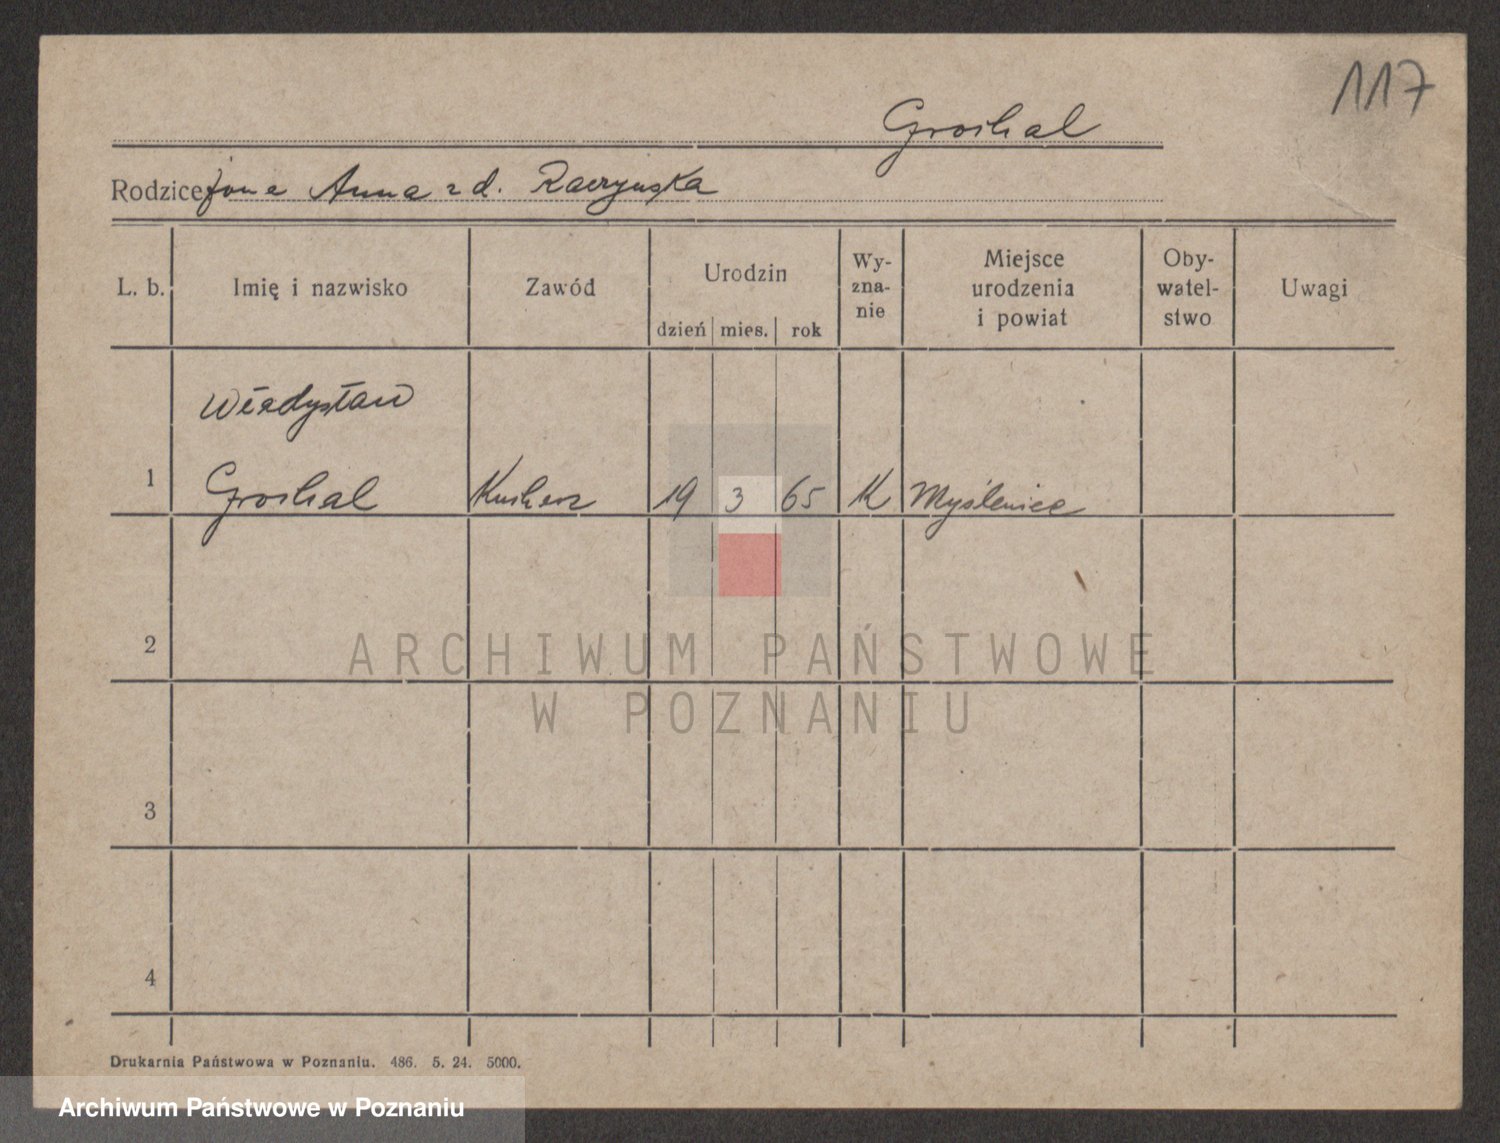 117
Groshal
Rodzice żona Anna z d. Raczyńska
L. b. Imię i nazwisko Zawód Urodzin dzień mies. rok Wy-zna-nie Miejsce urodzenia i powiat Oby-watel-stwo Uwagi
Władysław
1 Groshal Kusherz 19 3 65 K Myślenice
2
ARCHIWUM PAŃSTWOWE
W POZNANIU
3
4
Drukarnia Państwowa w Poznaniu. 486. 5. 24. 5000.
Archiwum Państwowe w Poznaniu